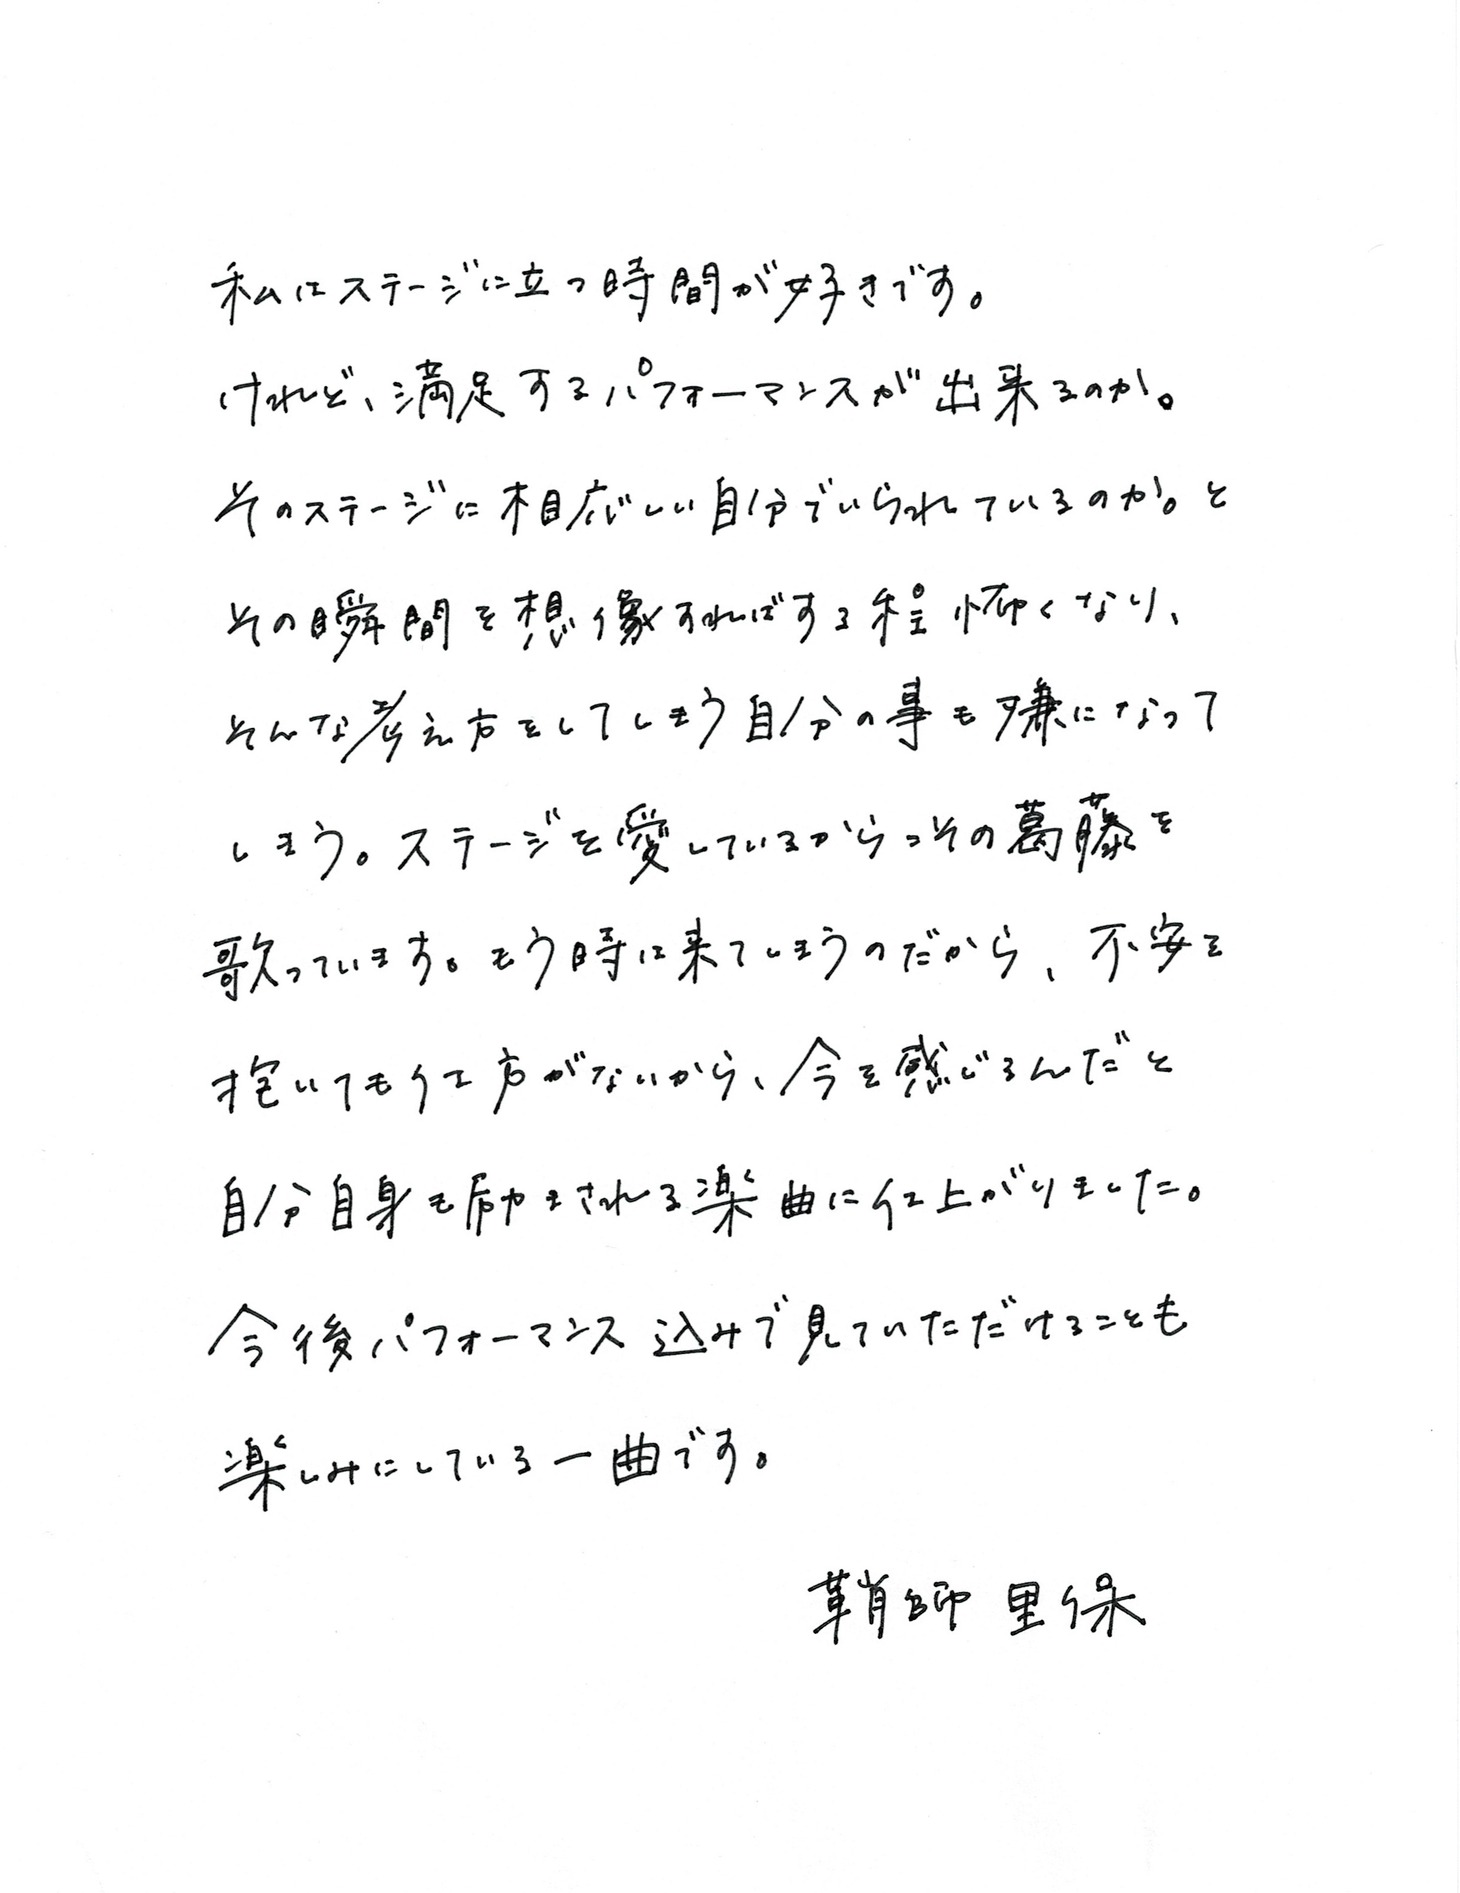 私はステージに立つ時間が好きです。
けれど、満足するパフォーマンスが出来るのか。
そのステージに相応しい自分でいられているのか。と
その瞬間を想像すればする程怖くなり、
そんな考え方をしてしまう自分の事も嫌になって
しまう。ステージを愛しているからこその葛藤を
歌っています。もう時は来てしまうのだから、不安を
抱いても仕方がないから、今を感じるんだと
自分自身も励まされる楽曲に仕上がりました。
今後パフォーマンス込みで見ていただけることも
楽しみにしている一曲です。
鞘師里保